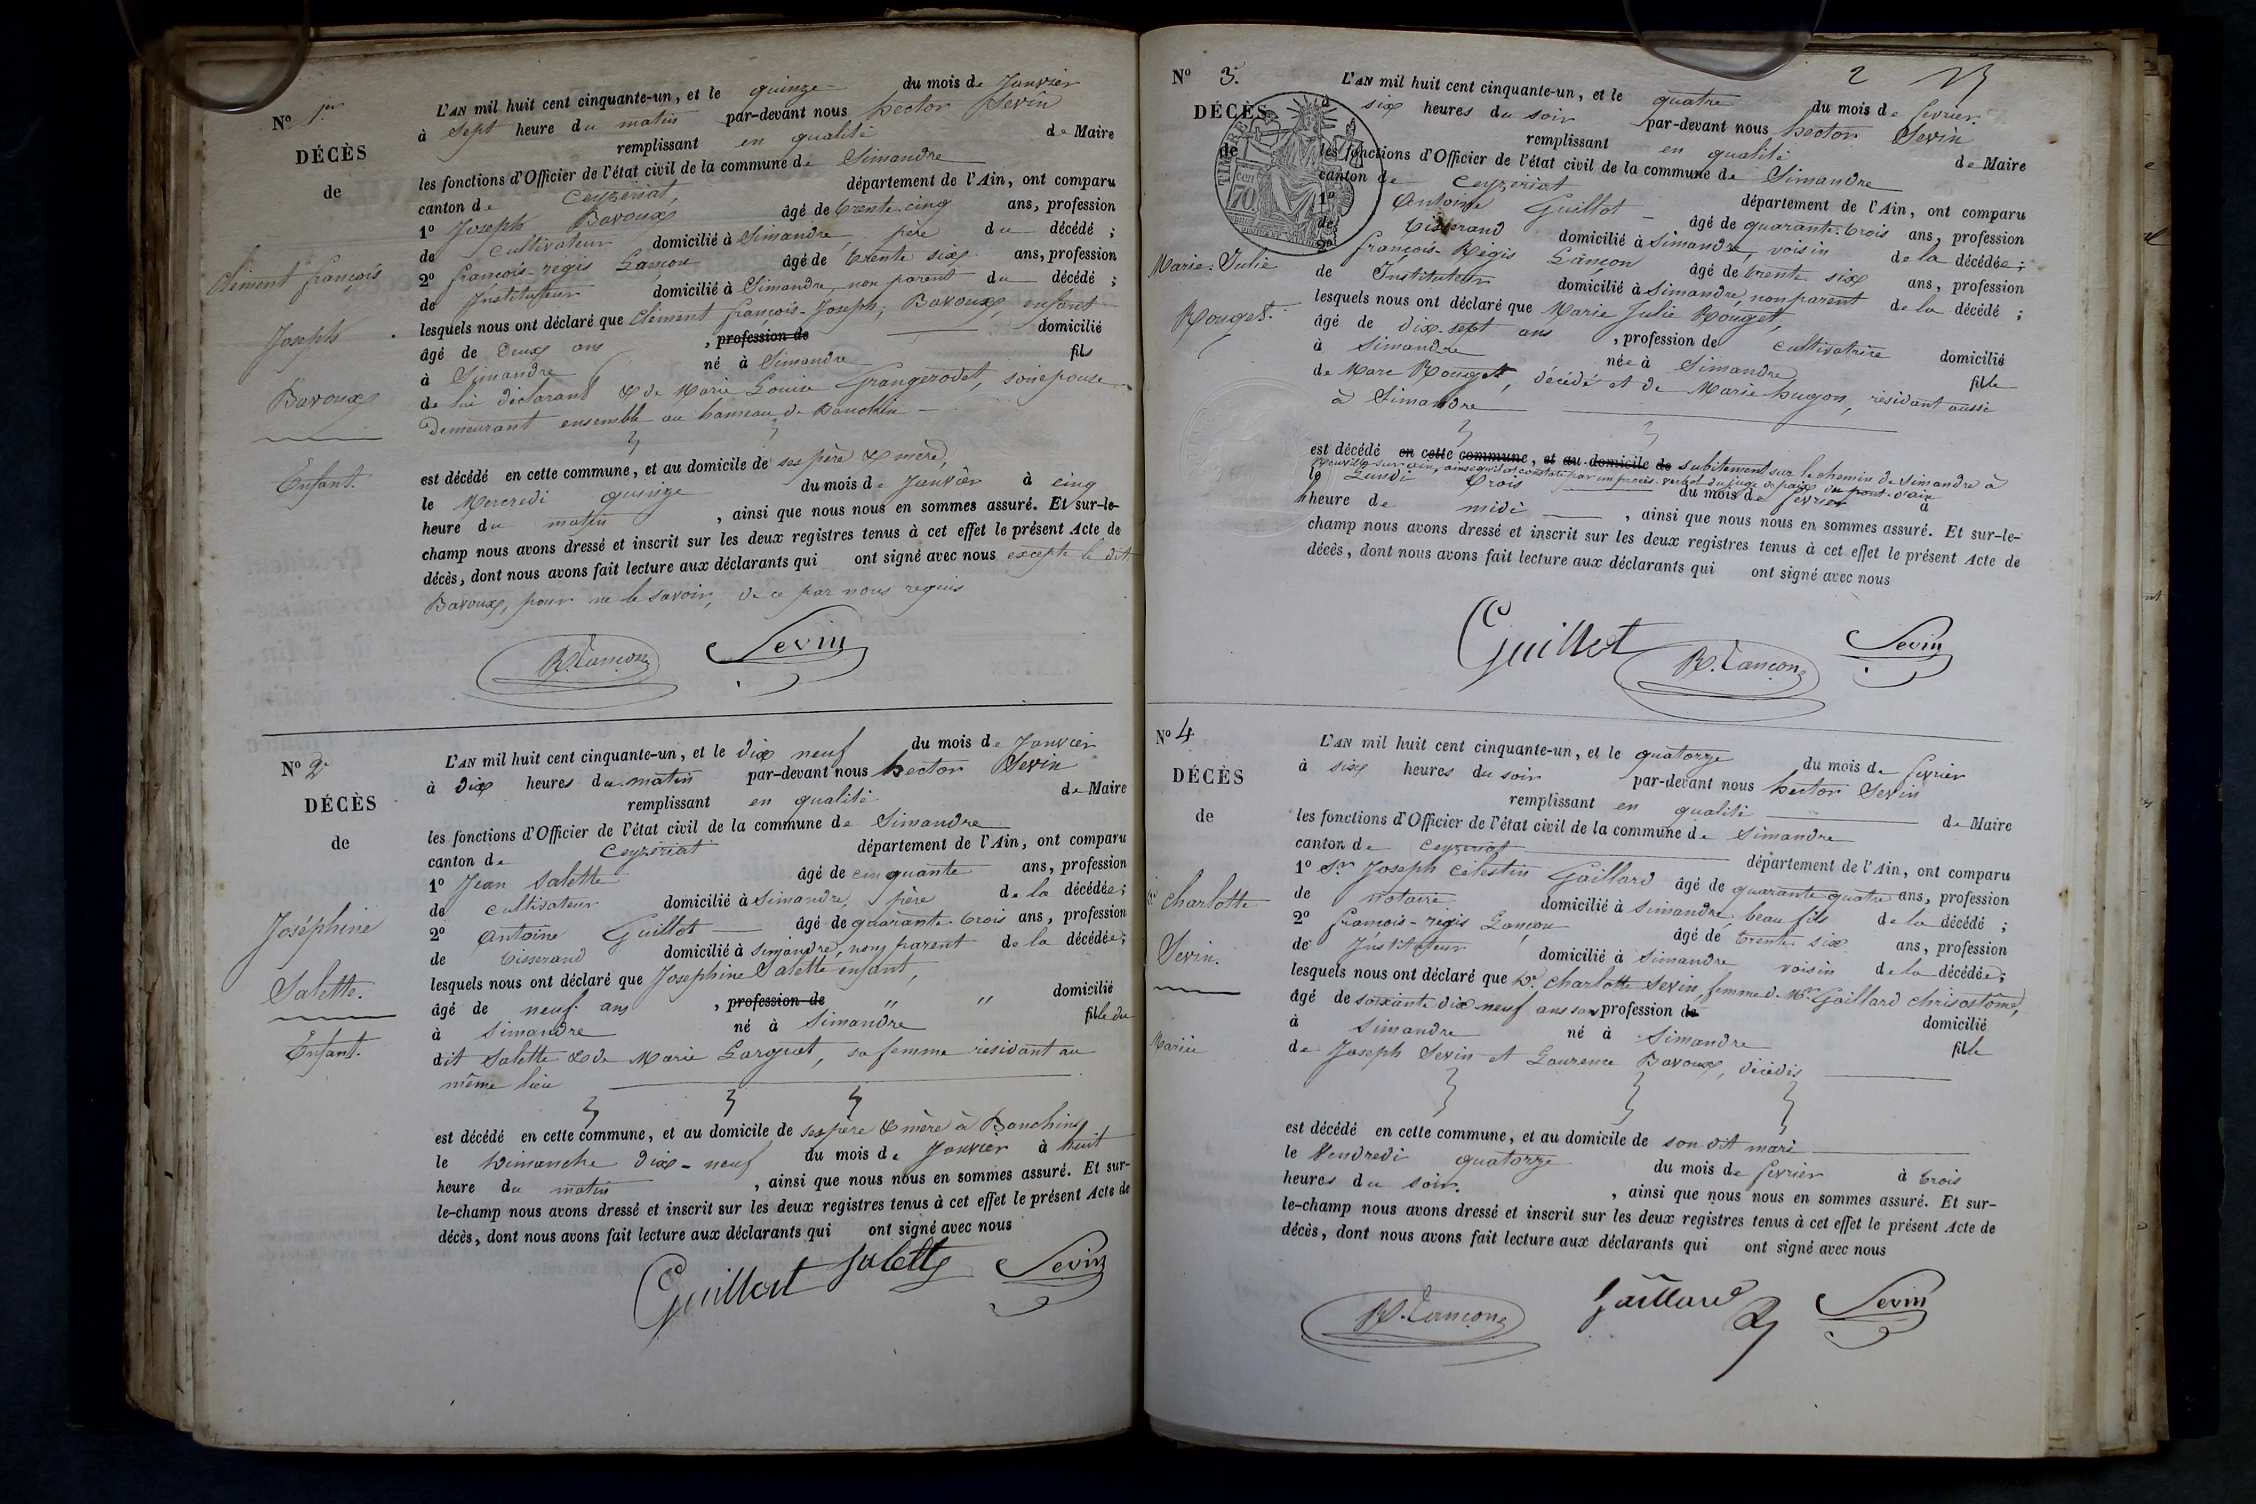 N° 1er
DÉCÈS
de
Clément françois
Joseph
Bavoux
Enfant.
L'AN mil huit cent cinquante-un, et le quinze du mois de Janvier
à sept heure du matin par-devant nous hector Sevin
remplissant en qualité de Maire
les fonctions d'Officier de l'état civil de la commune de Simandre
canton de Ceyzériat, département de l'Ain, ont comparu
1° Joseph Bavoux âgé de trente-cinq ans, profession
de cultivateur domicilié à Simandre, père du décédé ;
2° françois-regis Lançon âgé de trente six ans, profession
de Instituteur domicilié à Simandre, non parent du décédé ;
lesquels nous ont déclaré que Clément françois-Joseph, Bavoux, enfant
âgé de deux ans , profession de domicilié
à Simandre né à Simandre fils
de lui déclarant & de Marie Louise Grangerodet, son épouse
demeurant ensemble au hameau de Banchin
est décédé en cette commune, et au domicile de ses père & mère,
le Mercredi quinze du mois de Janvier à cinq
heure du matin , ainsi que nous nous en sommes assuré. Et sur-le-
champ nous avons dressé et inscrit sur les deux registres tenus à cet effet le présent Acte de
décès, dont nous avons fait lecture aux déclarants qui ont signé avec nous excepté le dit
Bavoux, pour ne le savoir, de ce par nous requis
R. Lançon Sevin
N° 2
DÉCÈS
de
Joséphine
Salette.
Enfant.
L'AN mil huit cent cinquante-un, et le dix neuf du mois de Janvier
à dix heures du matin par-devant nous hector Sevin
remplissant en qualité de Maire
les fonctions d'Officier de l'état civil de la commune de Simandre
canton de Ceyzériat département de l'Ain, ont comparu
1° Jean Salette âgé de cinquante ans, profession
de cultivateur domicilié à Simandre, père de la décédée ;
2° Antoine Guillot âgé de quarante-trois ans, profession
de tisserand domicilié à Simandre, non parent de la décédée ;
lesquels nous ont déclaré que Josephine Salette enfant,
âgé de neuf ans , profession de " " domicilié
à Simandre né à Simandre fille du
dit Salette & de Marie Gorguet, sa femme résidant au
même lieu
est décédé en cette commune, et au domicile de ses père & mère à Banchin
le Dimanche dix-neuf du mois de Janvier à huit
heure du matin , ainsi que nous nous en sommes assuré. Et sur-
le-champ nous avons dressé et inscrit sur les deux registres tenus à cet effet le présent Acte de
décès, dont nous avons fait lecture aux déclarants qui ont signé avec nous
Guillot Salette Sevin
2
N° 3.
DÉCÈS
de
TIMBRE
70 cen
Marie-Julie
Rouget.
L'AN mil huit cent cinquante-un, et le quatre du mois de fevrier.
à six heures du soir par-devant nous hector Sevin
remplissant en qualité de Maire
les fonctions d'Officier de l'état civil de la commune de Simandre
canton de Ceyzériat département de l'Ain, ont comparu
1° Antoine Guillot âgé de quarante-trois ans, profession
de tisserand domicilié à Simandre, voisin de la décédée ;
2° françois-Régis Lançon âgé de trente six ans, profession
de Instituteur domicilié à Simandre, non parent de la décédé ;
lesquels nous ont déclaré que Marie Julie Rouget,
âgé de dix-sept ans , profession de cultivatrice domicilié
à Simandre née à Simandre fille
de Marc Rouget, décédé et de Marie hugon, résidant aussi
à Simandre
est décédé en cette commune, et au domicile de subitement sur le chemin de Simandre à
Neuville-sur-ain, ainsi qu'il est constaté par un procès-verbal du juge de paix de pont-d'ain
le Lundi trois du mois de fevrier à
heure de midi , ainsi que nous nous en sommes assuré. Et sur-le-
champ nous avons dressé et inscrit sur les deux registres tenus à cet effet le présent Acte de
décès, dont nous avons fait lecture aux déclarants qui ont signé avec nous
Guillot R. Lançon Sevin
N° 4
DÉCÈS
de
charlotte
Sevin.
Mariée
L'AN mil huit cent cinquante-un, et le quatorze du mois de fevrier
à six heures du soir par-devant nous hector Sevin
remplissant en qualité de Maire
les fonctions d'Officier de l'état civil de la commune de Simandre
canton de Ceyzériat département de l'Ain, ont comparu
1° Sr Joseph Célestin Gaillard âgé de quarante quatre ans, profession
de notaire domicilié à Simandre beau fils de la décédé ;
2° françois-regis Lançon âgé de trente six ans, profession
de Instituteur domicilié à Simandre voisin de la décédée ;
lesquels nous ont déclaré que De charlotte Sevin, femme de Mr Gaillard chrisostôme,
âgé de soixante dix neuf ans sans profession de domicilié
à Simandre né à Simandre fille
de Joseph Sevin et Laurence Bavoux, décédés
est décédé en cette commune, et au domicile de son dit mari
le Vendredi quatorze du mois de fevrier à trois
heures du soir. , ainsi que nous nous en sommes assuré. Et sur-
le-champ nous avons dressé et inscrit sur les deux registres tenus à cet effet le présent Acte de
décès, dont nous avons fait lecture aux déclarants qui ont signé avec nous
R. Lançon Gaillard Sevin